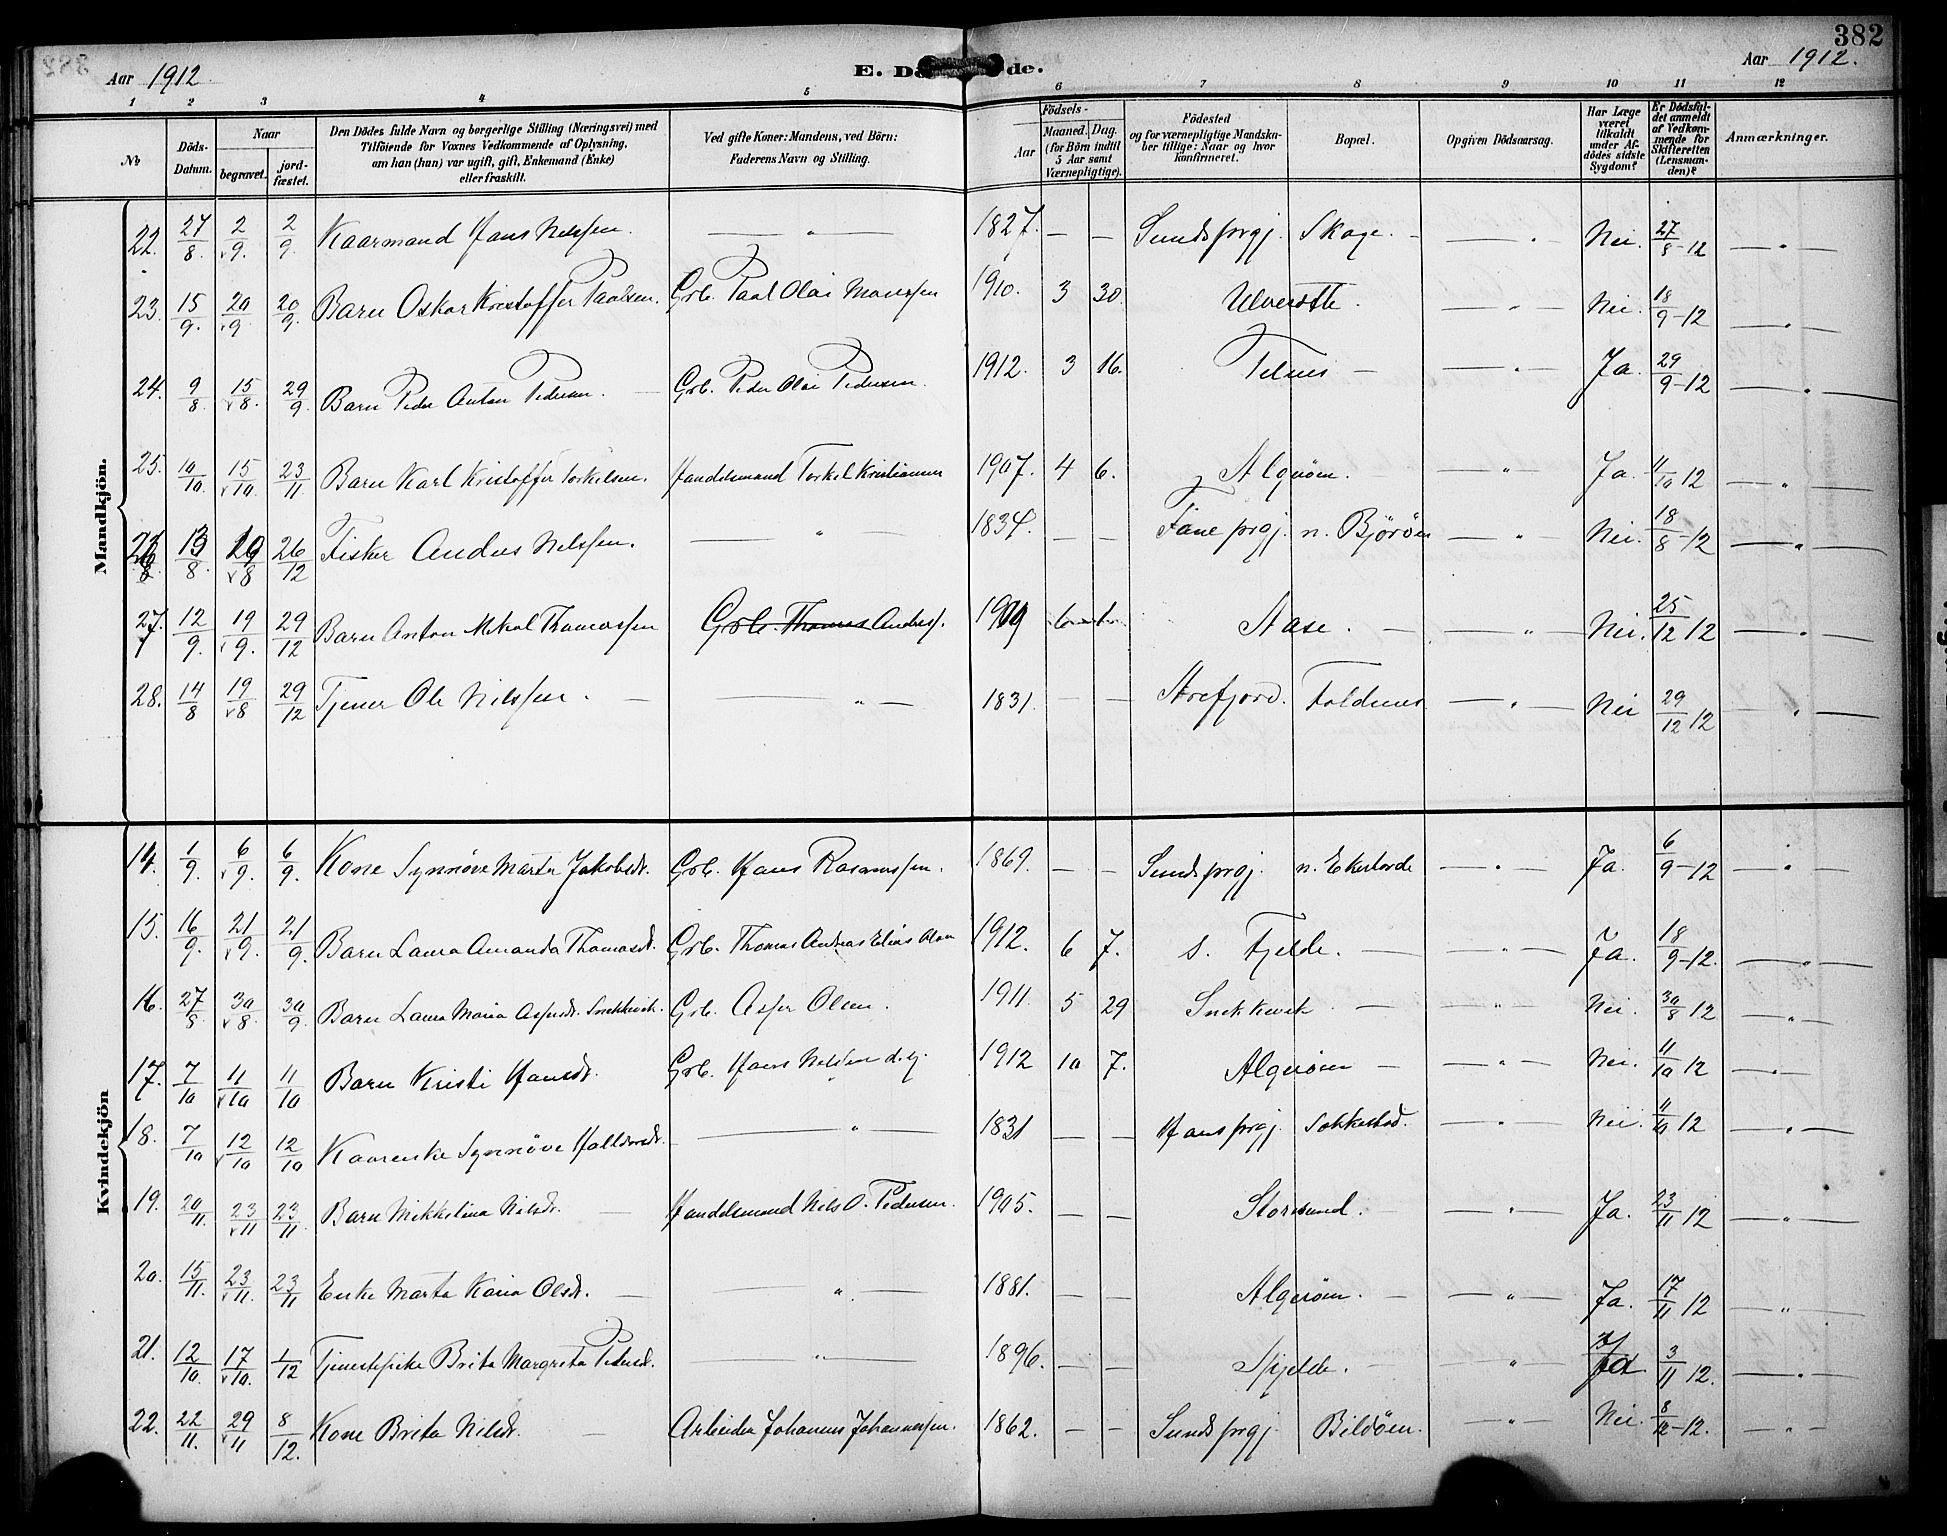 382
Aar 1912. E. Dö de. Aar 1912.
1 2 3 4 5 6 7 8 9 10 11 12
No | Döds-Datum. | Naar begravet. | jord-fæstet. | Den Dödes fulde Navn og borgerlige Stilling (Næringsvei) med Tilföiende for Voxnes Vedkommende af Oplysning, om han (hun) var ugift, gift, Enkemand (Enke) eller fraskilt. | Ved gifte Koner: Mandens, ved Börn: Faderens Navn og Stilling. | Aar | Födsels- Maaned. Dag. (for Börn indtil 5 Aar samt Værnepligtige). | Födested og for værnepligtige Mandskaber tillige: Naar og hvor konfirmeret. | Bopæl. | Opgiven Dödsaarsag. | Har Læge været tilkaldt under Afdödes sidste Sygdom? | Er Dödsfaldet anmeldt af Vedkommende for Skifteretten (Lensmanden)? | Anmærkninger.
Mandkjön.
22. 27/8. 2/9. 2/9. Kaarmand Hans Nilssen. — " — 1827. — — Sunds prgj. Skage. — " Nei. 27/8-12 — " —
23. 15/9. 20/9 20/9. Barn Oskar Kristoffer Paalsen. Grb. Paal Olai Monssen 1910. 3 30. Ulvesæth. — " — Nei. 18/9-12 — " —
24. 9/8. 15/8. 29/9. Barn Peder Anton Pedersen. — Grb. Peder Olai Pedersen. 1912. 3 16. Telnes — — " — Ja. 29/9-12 — " —
25. 10/10. 15/10. 23/11. Barn Karl Kristoffer Torkelsen. Handelsmand Torkel Kristiansen 1907. 4 6. Algrøen. — " — Ja. 11/10 12 — " —
26 13/8. 19/8 26/12 Fisker Anders Nilssen. — " — 1834. — — Fane prgj. n. Bjørøen — " — Nei. 18/8-12 — " —
27. 12/9. 19/9. 29/12 Barn Anton Mikal Thomassen Grb. Thomas Anders. 1909 Aase. — — " — Nei. 25/12 12 — " —
28. 14/8 19/8 29/12 Tjener Ole Nilssen. — — " — 1831. — — Arefjord. Foldnes — " — Nei 29/12 12 — " —
Kvindekjön
14. 1/9. 6/9. 6/9. Kone Synnøve Marta Jakobsdr. Grb. Hans Rasmussen. 1869. — — Sunds prgj. n. Ekerhovde — " — Ja. 6/9-12 — " —
15. 16/9. 21/9. 21/9. Barn Laura Amanda Thomasdr. Grb. Thomas Andreas Elias Olsen 1912. 6 7. s. Fjelde. — — " — Ja. 18/9-12. — " —
16. 27/8 30/8. 30/9. Barn Laura Maria Aspersdr. Snekkevik. Grb. Asper Olsen. 1911. 5 29 Snekkevik — — " — Nei. 30/8 12 — " —
17. 7/10 11/10 11/10 Barn Kristi Hansdr. Grb. Hans Nilssen d.y. 1912 10 7. Algerøen — — " — Nei. 11/10 12 — " —
18. 7/10 12/10 12/10 Kaarenke Synnøve Halldorsdr. — " — 1831 — — Haus prgj. Sokkestad. — " — Nei. 11/10 12 — " —
19. 20/11. 23/11 23/11 Barn Mikkelina Nilsdr. — Handelsmand Nils O. Pedersen. 1905. — — Storesund. — " — Ja. 23/11 12 — " —
20. 15/11. 23/11. 23/11 Enke Marta Karia Olsdr. — — " — 1881. — — Algerøen. — — " — Ja. 17/11 12 — " —
21. 12/10. 17/10. 1/12 Tjenestepike Brita Margreta Pedersdr. — " — 1896. — — Spjelde. — " Ja 3/11 12. — " —
22. 22/11. 29/11 8/12. Kone Brita Nilsdr. — Arbeider Johannes Johannessen. 1862. — — Sunds prgj. Bildøen. — " — Nei. 8/12-12. — " —